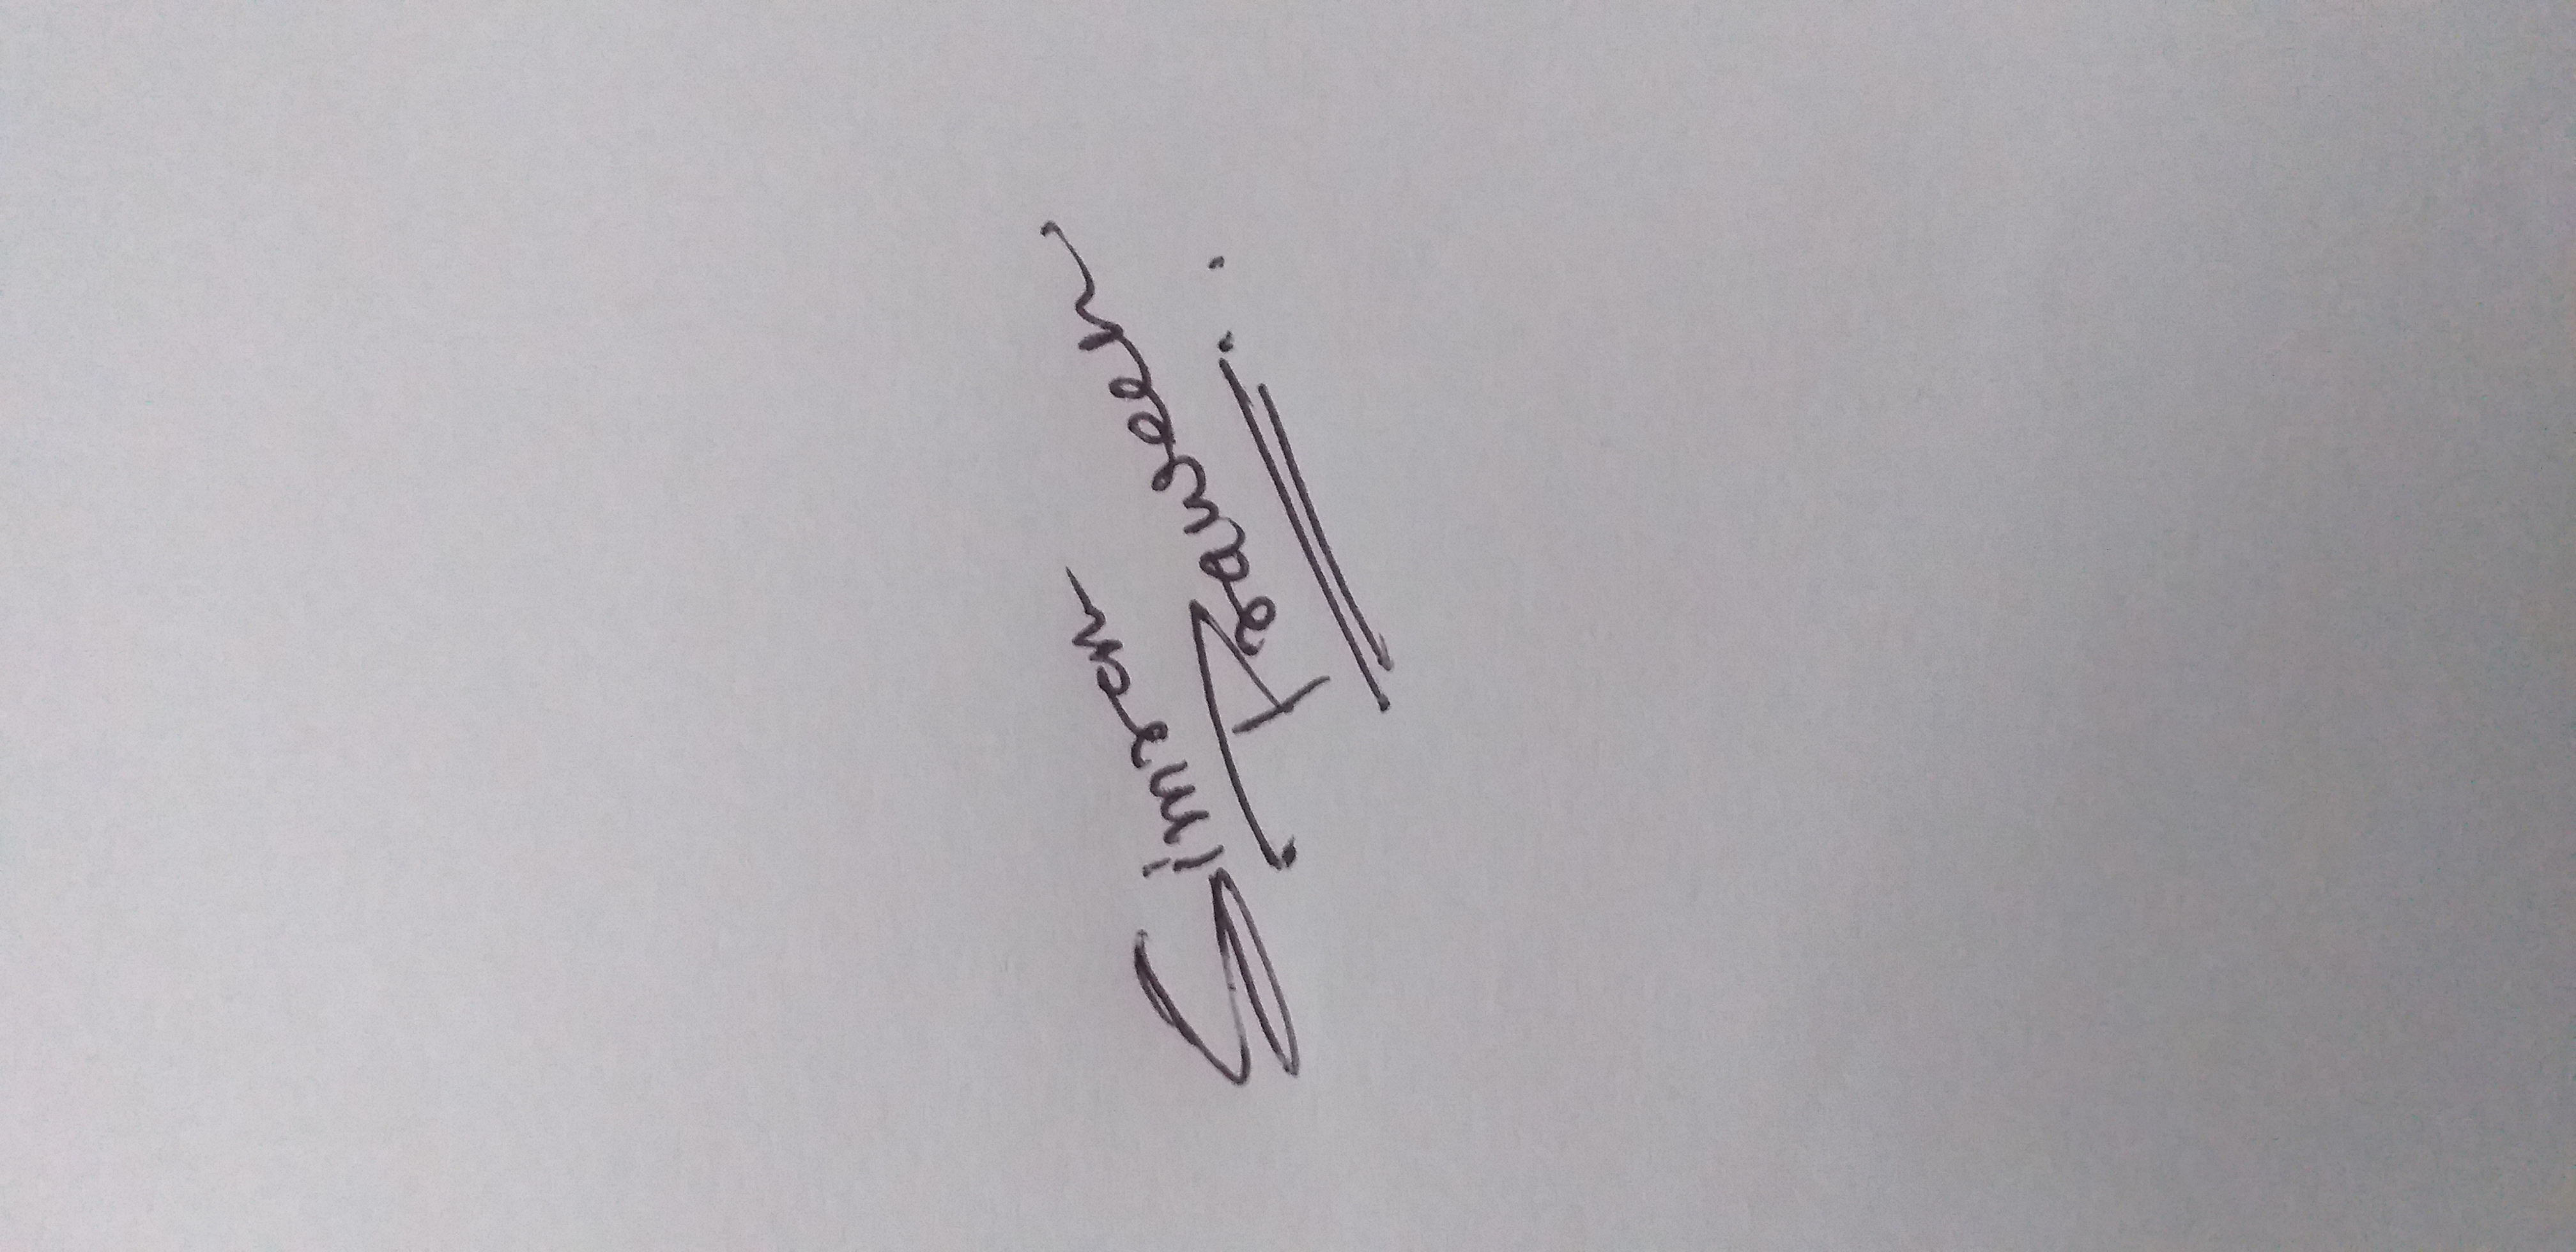 Simran
Praween